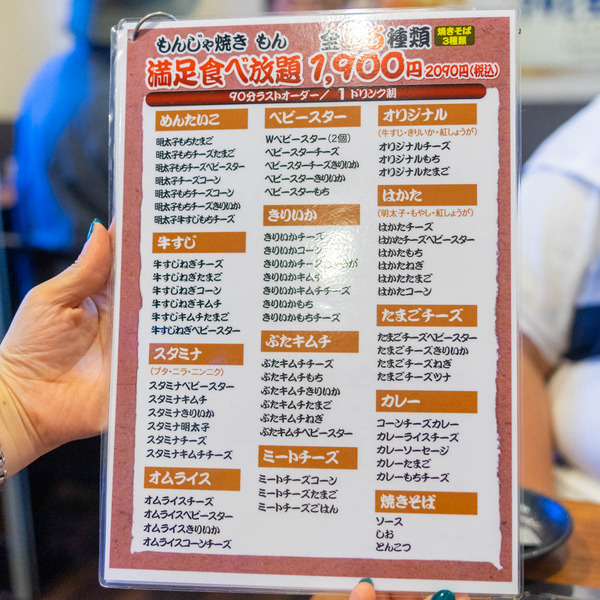 もんじゃ焼き もん
種類
焼きそば
3種類
満足食べ放題 1,900円 2090円(税込)
90分ラストオーダー/ 1ドリンク制
めんたいこ
明太子もちたまご
明太子もちチーズたまご
明太子もちチーズベビースター
明太子チーズコーン
明太子もちチーズコーン
明太子もちチーズきりいか
明太子牛すじもちチーズ
牛すじ
牛すじねぎチーズ
牛すじねぎたまご
牛すじねぎコーン
牛すじねぎキムチ
牛すじキムチたまご
牛すじねぎベビースター
スタミナ
(ブタ・ニラ・ニンニク)
スタミナベビースター
スタミナキムチ
スタミナきりいか
スタミナ明太子
スタミナチーズ
スタミナキムチチーズ
オムライス
オムライスチーズ
オムライスベビースター
オムライスきりいか
オムライスコーンチーズ
ベビースター
Wベビースター(2個)
ベビースターチーズ
ベビースターチーズきりいか
ベビースターきりいか
ベビースターもち
きりいか
きりいかチーズ
きりいかコーン
きりいかチーズ
きりいかキムチ
きりいかキムチチーズ
きりいかもち
きりいかもちチーズ
ぶたキムチ
ぶたキムチチーズ
ぶたキムチもち
ぶたキムチきりいか
ぶたキムチたまご
ぶたキムチねぎ
ぶたキムチベビースター
ミートチーズ
ミートチーズコーン
ミートチーズたまご
ミートチーズごはん
オリジナル
(牛すじ・きりいか・紅しょうが)
オリジナルチーズ
オリジナルもち
オリジナルたまご
はかた
(明太子・もやし・紅しょうが)
はかたチーズ
はかたチーズベビースター
はかたもち
はかたねぎ
はかたたまご
はかたコーン
たまごチーズ
たまごチーズベビースター
たまごチーズきりいか
たまごチーズねぎ
たまごチーズツナ
カレー
コーンチーズカレー
カレーライスチーズ
カレーソーセージ
カレーたまご
カレーもちチーズ
焼きそば
ソース
しお
とんこつ